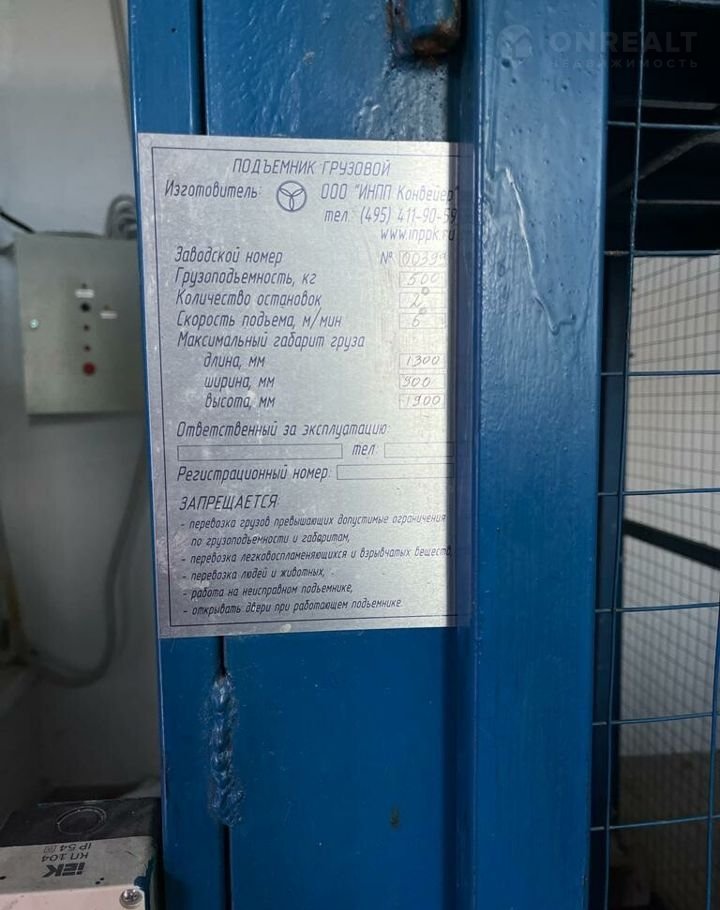 ONREALT
НЕДВИЖИМОСТЬ
ПОДЪЕМНИК ГРУЗОВОЙ
Изготовитель: ООО "ИНПП Конвейер"
тел. (495) 411-90-59
www.inppk.ru
Заводской номер № 00399
Грузоподъемность, кг 500
Количество остановок 2
Скорость подъема, м/мин 6
Максимальный габарит груза
длина, мм 1300
ширина, мм 900
высота, мм 1900
Ответственный за эксплуатацию:
тел.:
Регистрационный номер:
ЗАПРЕЩАЕТСЯ
- перевозка грузов превышающих допустимые ограничения
по грузоподъемности и габаритам,
- перевозка легковоспламеняющихся и взрывчатых веществ,
- перевозка людей и животных,
- работа на неисправном подъемнике,
- открывать двери при работающем подъемнике.
IEK
КП 104
IP 54